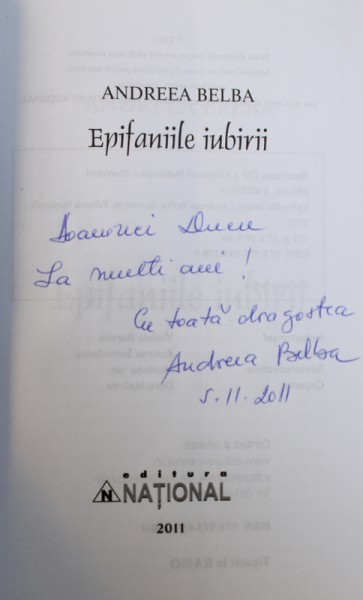 ANDREEA BELBA
Epifaniile iubirii
Doamnei Ducu
La multi ani !
Cu toată dragostea
Andreea Belba
5.11.2011
editura
N NAȚIONAL
2011